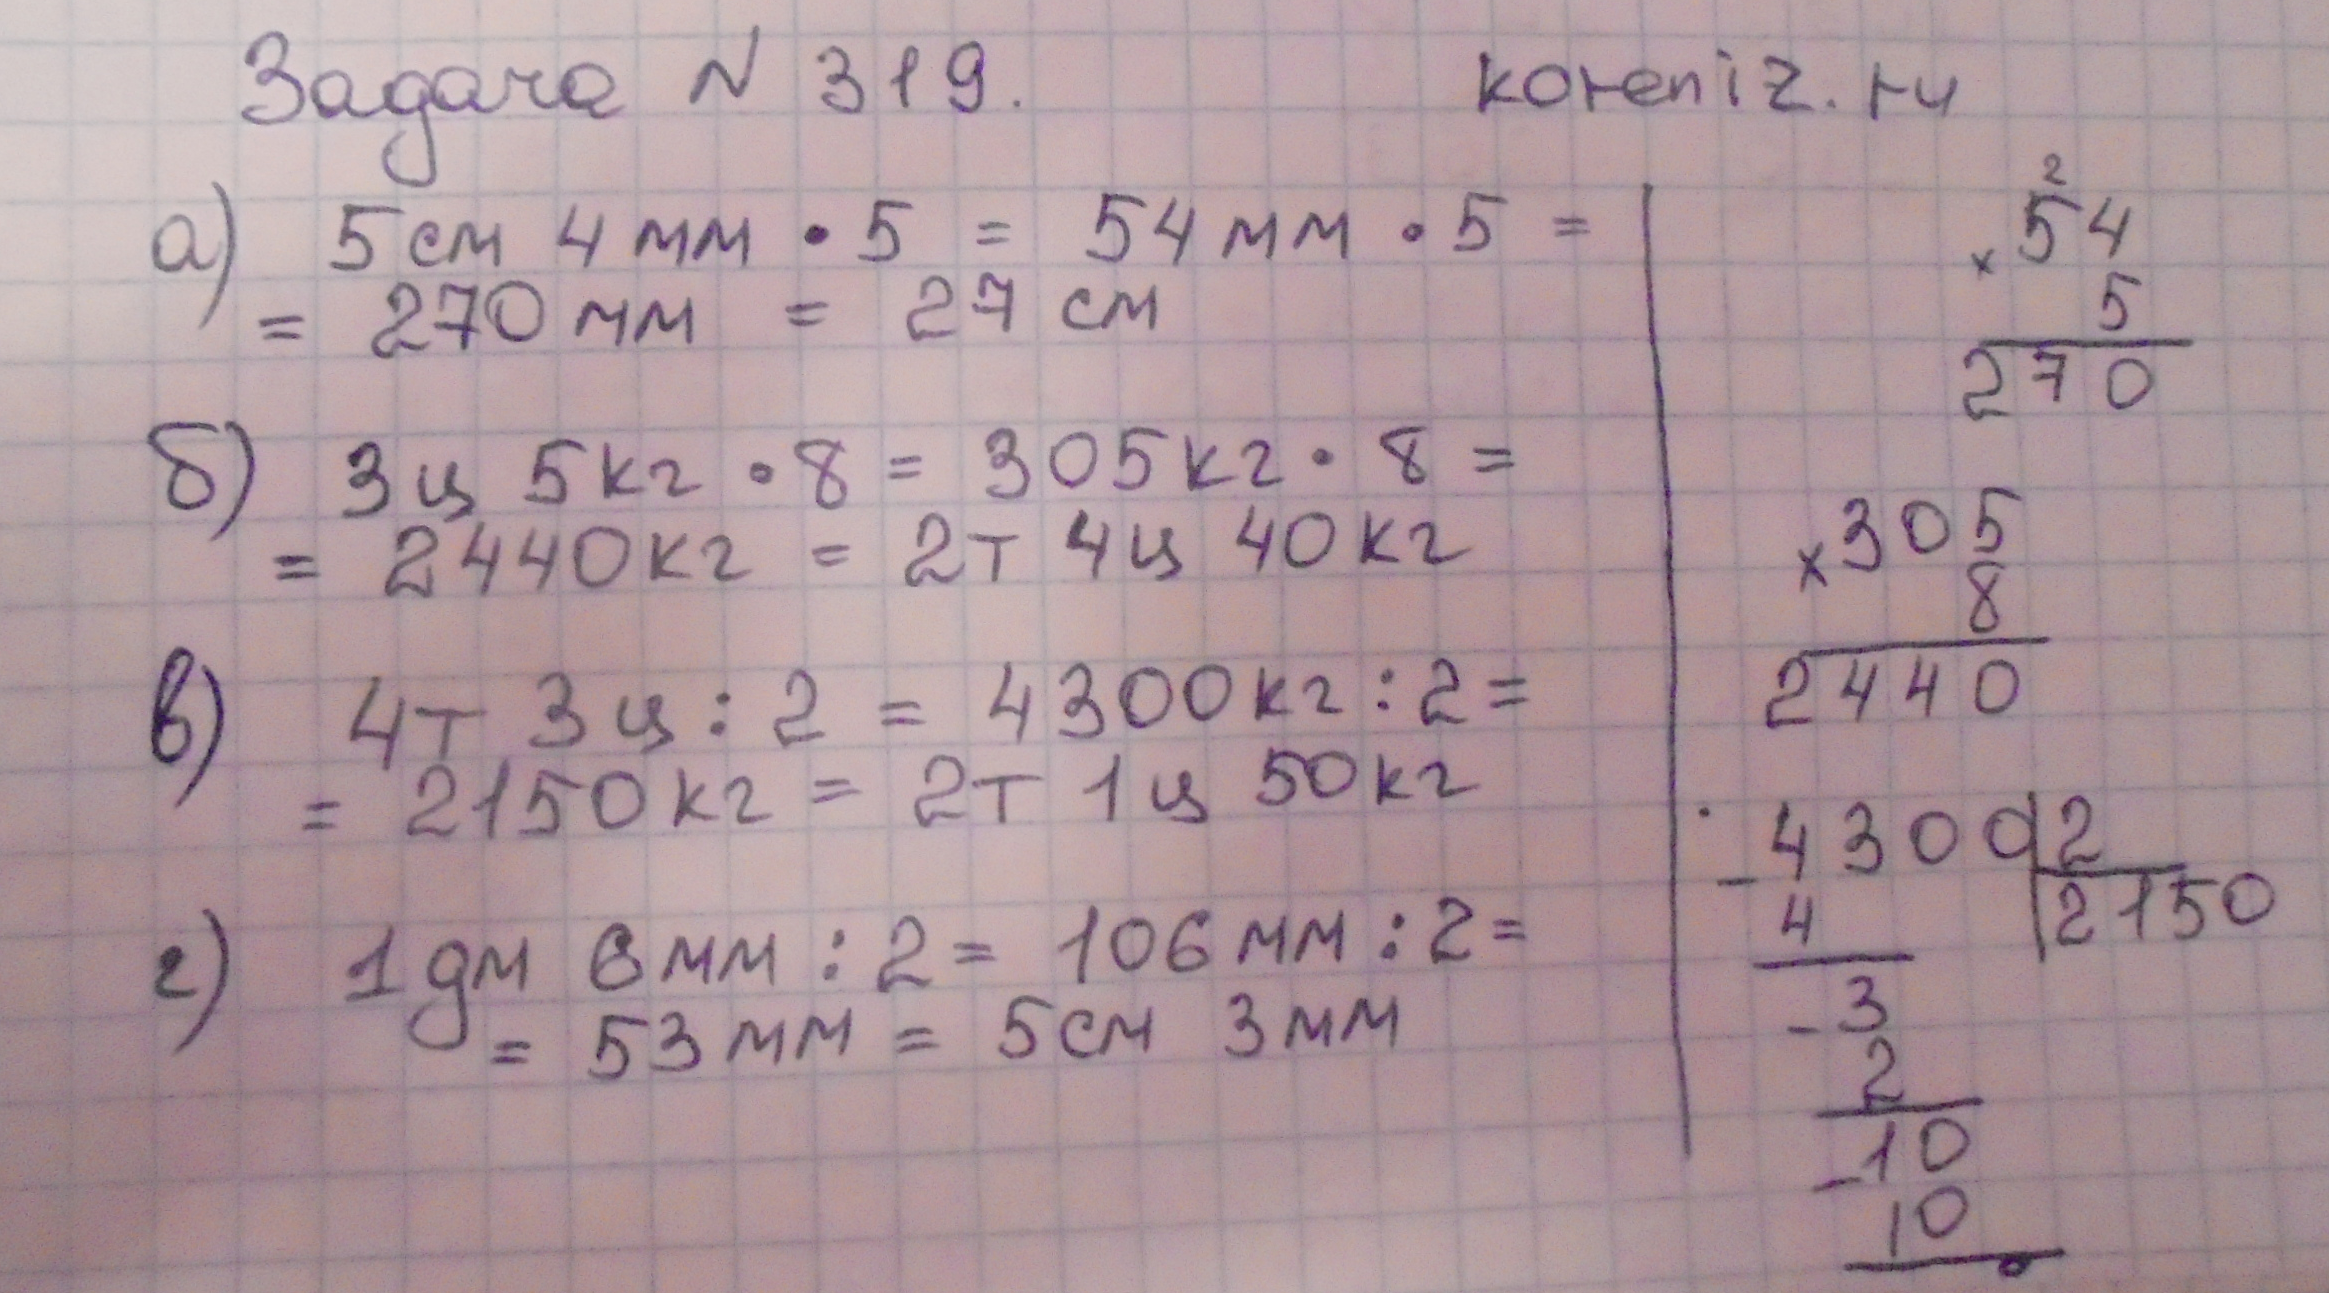 Задача N 319.
koreniz.ru
а) 5см 4мм • 5 = 54мм • 5 =
= 270мм = 27 см
б) 3ц 5кг • 8 = 305кг • 8 =
= 2440кг = 2т 4ц 40кг
в) 4т 3ц : 2 = 4300кг : 2 =
= 2150кг = 2т 1ц 50кг
г) 1дм 6мм : 2 = 106мм : 2 =
= 53мм = 5см 3мм
2
× 54
5
270
× 305
8
2440
- 4300 2
4 2150
- 3
2
- 10
10
0